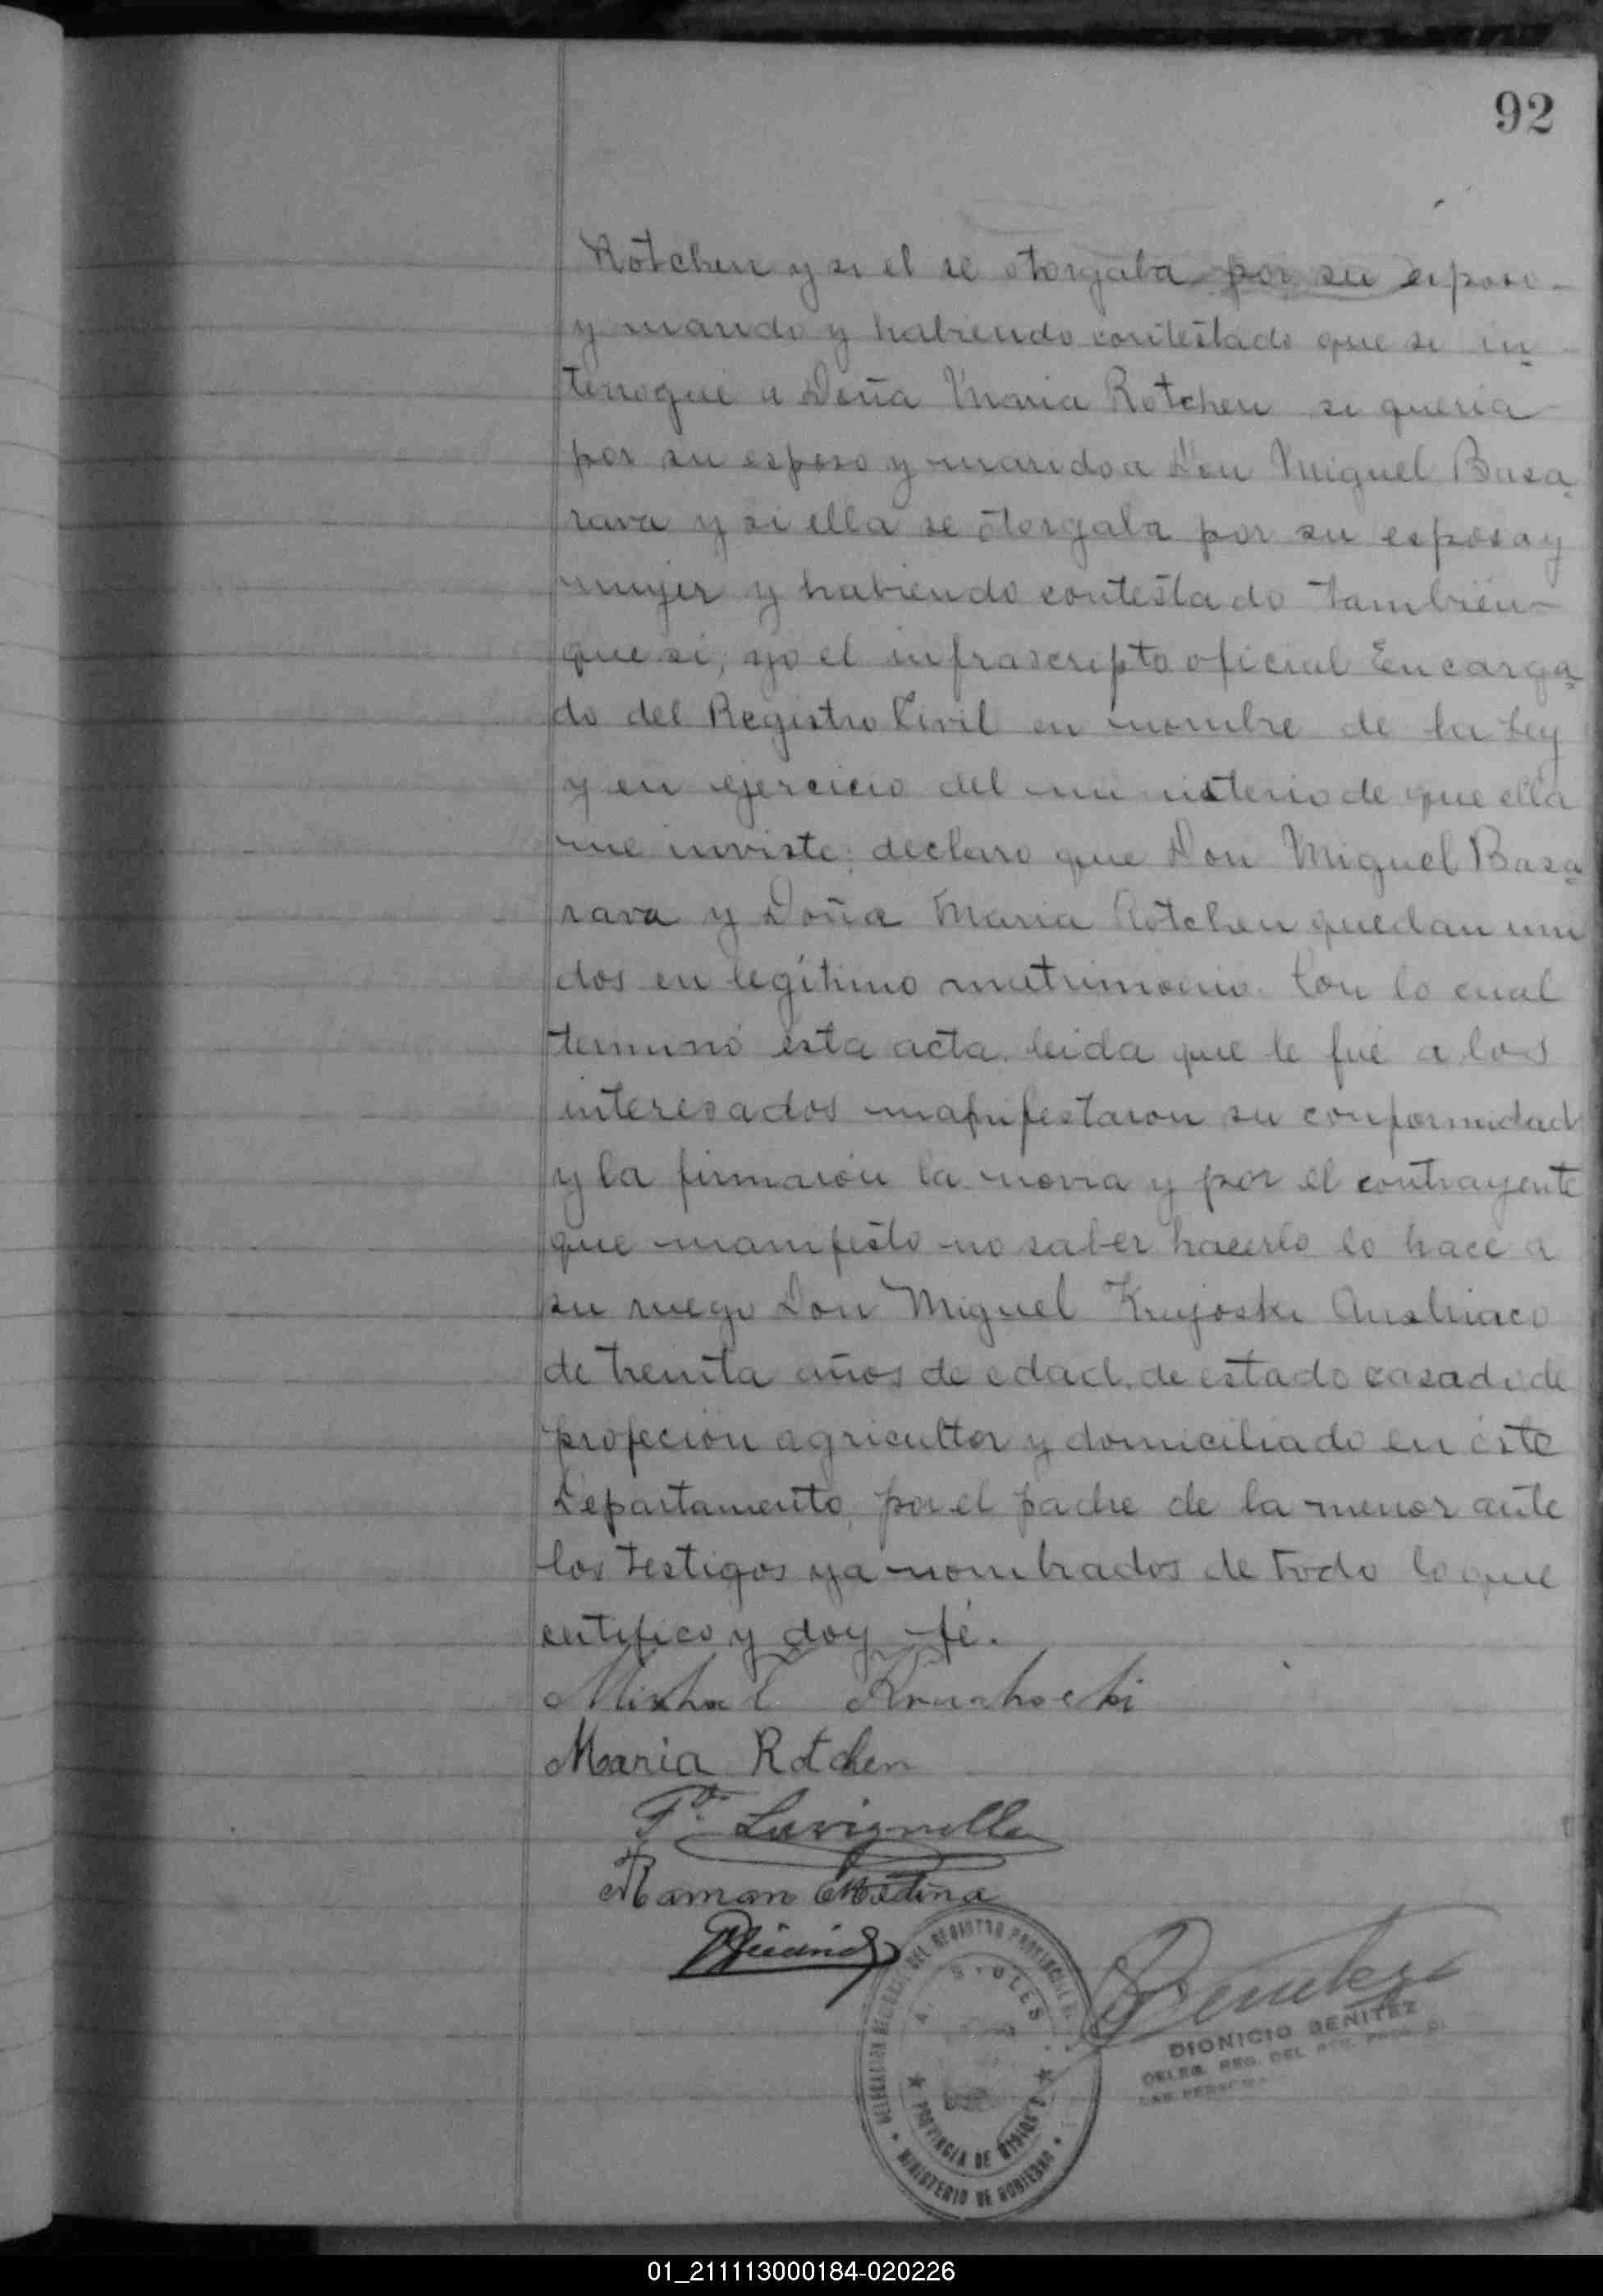 92
Rotchen y si el se otorgaba por su esposo
y marido y habiendo contestado que si in
terrogue a Doña Maria Rotchen si queria
por su esposo y marido a Don Miguel Basa
rava y si ella se otorgaba por su esposa y
mujer y habiendo contestado tambien
que si, yo el infrascripto oficial Encarga
do del Registro Civil en nombre de la Ley
y en ejercicio del ministerio de que ella
me inviste; declaro que Don Miguel Basa
rava y Doña Maria Rotchen quedan uni
dos en legítimo matrimonio. Con lo cual
terminó esta acta, leida que le fué a los
interesados manifestaron su conformidad
y la firmaron la novia y por el contrayente
que manifestó no saber hacerlo lo hace a
su ruego Don Miguel Krujoski Austriaco
de treinta años de edad, de estado casado de
profeción agricultor y domiciliado en éste
Departamento, por el padre de la menor ante
los testigos ya nombrados de todo lo que
certifico y doy fé.
Maria Rotchen
Ramon Medina
DELEGACION REGIONAL DEL REGISTRO PROVINCIAL
PROVINCIA DE MISIONES
MINISTERIO DE GOBIERNO
Benitez
DIONICIO BENITEZ
DELEG. REG. DEL
01_211113000184-020226